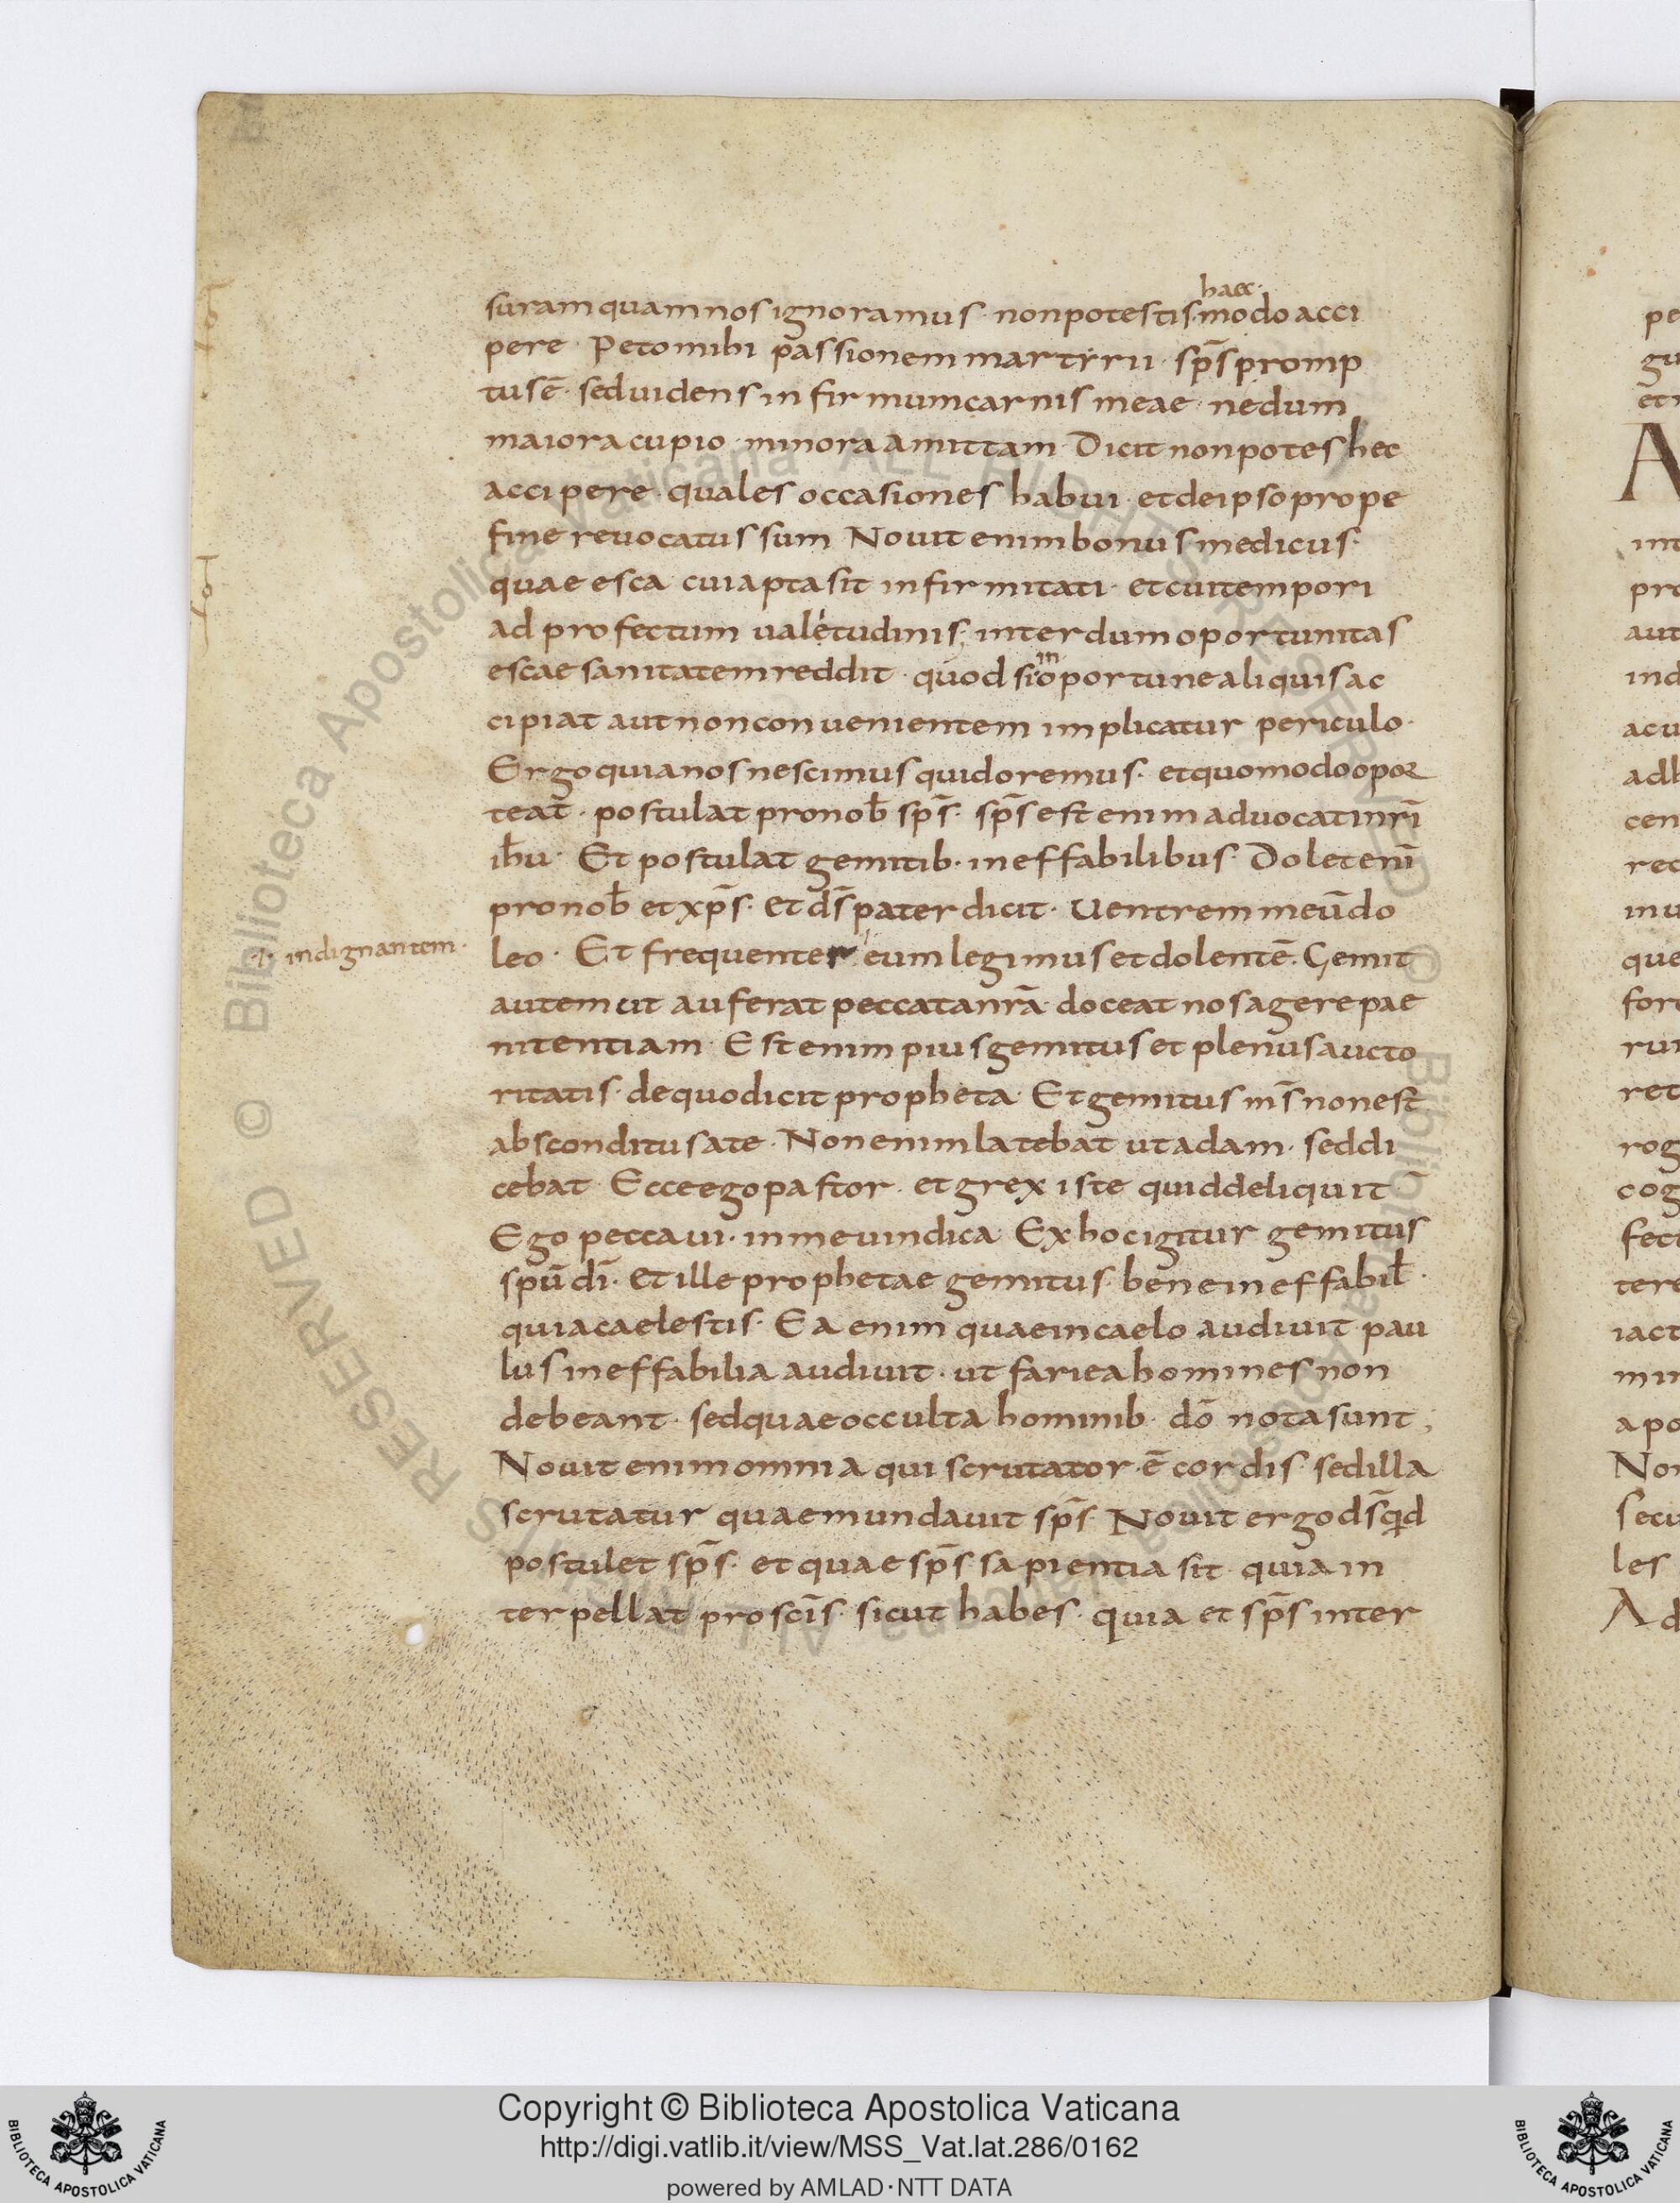 haec·
suram quam nos ignoramus· non potestis modo acci
pere· Peto mihi passionem martyrii· sp̄s promp
tus ē· sed uidens infirmum carnis meae· ne dum
maiora cupio· minora amittam· Dicit non potes hec
accipere· quales occasiones habui· et de ipso prope
fine reuocatus sum· Nouit enim bonus medicus·
quae esca cui apta sit infirmitati· et cui tempori
ad profectum ualetudinis; interdum oportunitas
escae sanitatem reddit· quod si oportune aliquis ac
in
cipiat aut non conuenientem implicatur periculo·
Ergo quia nos nescimus quid oremus· et quomodo opor
teat· postulat pro nob̄ sp̄s· sp̄s est enim aduocati nr̄i
ih̄u· Et postulat gemitib· ineffabilibus· Dolet eni̅
pro nob̄ et xp̄s· Et ds̄ pater dicit· Uentrem meū do
·/· indignantem·
leo· Et frequenter eum legimus et dolentē· Gemit
autem ut auferat peccata nr̄a· doceat nos agere pae
nitentiam· Est enim pius gemitus et plenus aucto
ritatis· de quo dicit propheta· Et gemitus ms̄ non est
absconditus a te· Non enim latebat ut adam· sed di
cebat· Ecce ego pastor· et grex iste quid deliquit
Ego peccaui· in me uindica· Ex hoc igitur gemitus
spū dī· Et ille prophetae gemitus· bene ineffabil̄·
quia caelestis· Ea enim quae in caelo audiuit pau
lus ineffabilia audiuit· ut fari ea homines non
debeant· sed quae occulta hominib· dō nota sunt;
Nouit enim omnia qui scrutator ē cordis· sed illa
scrutatur quae mundauit sp̄s· Nouit ergo ds̄ qd
postulet sp̄s· et quae sp̄s sapientia sit· quia in
terpellat pro scīs· sicut habes· quia et sp̄s inter
Copyright © Biblioteca Apostolica Vaticana
http://digi.vatlib.it/view/MSS_Vat.lat.286/0162
powered by AMLAD·NTT DATA
BIBLIOTECA APOSTOLICA VATICANA
BIBLIOTECA APOSTOLICA VATICANA